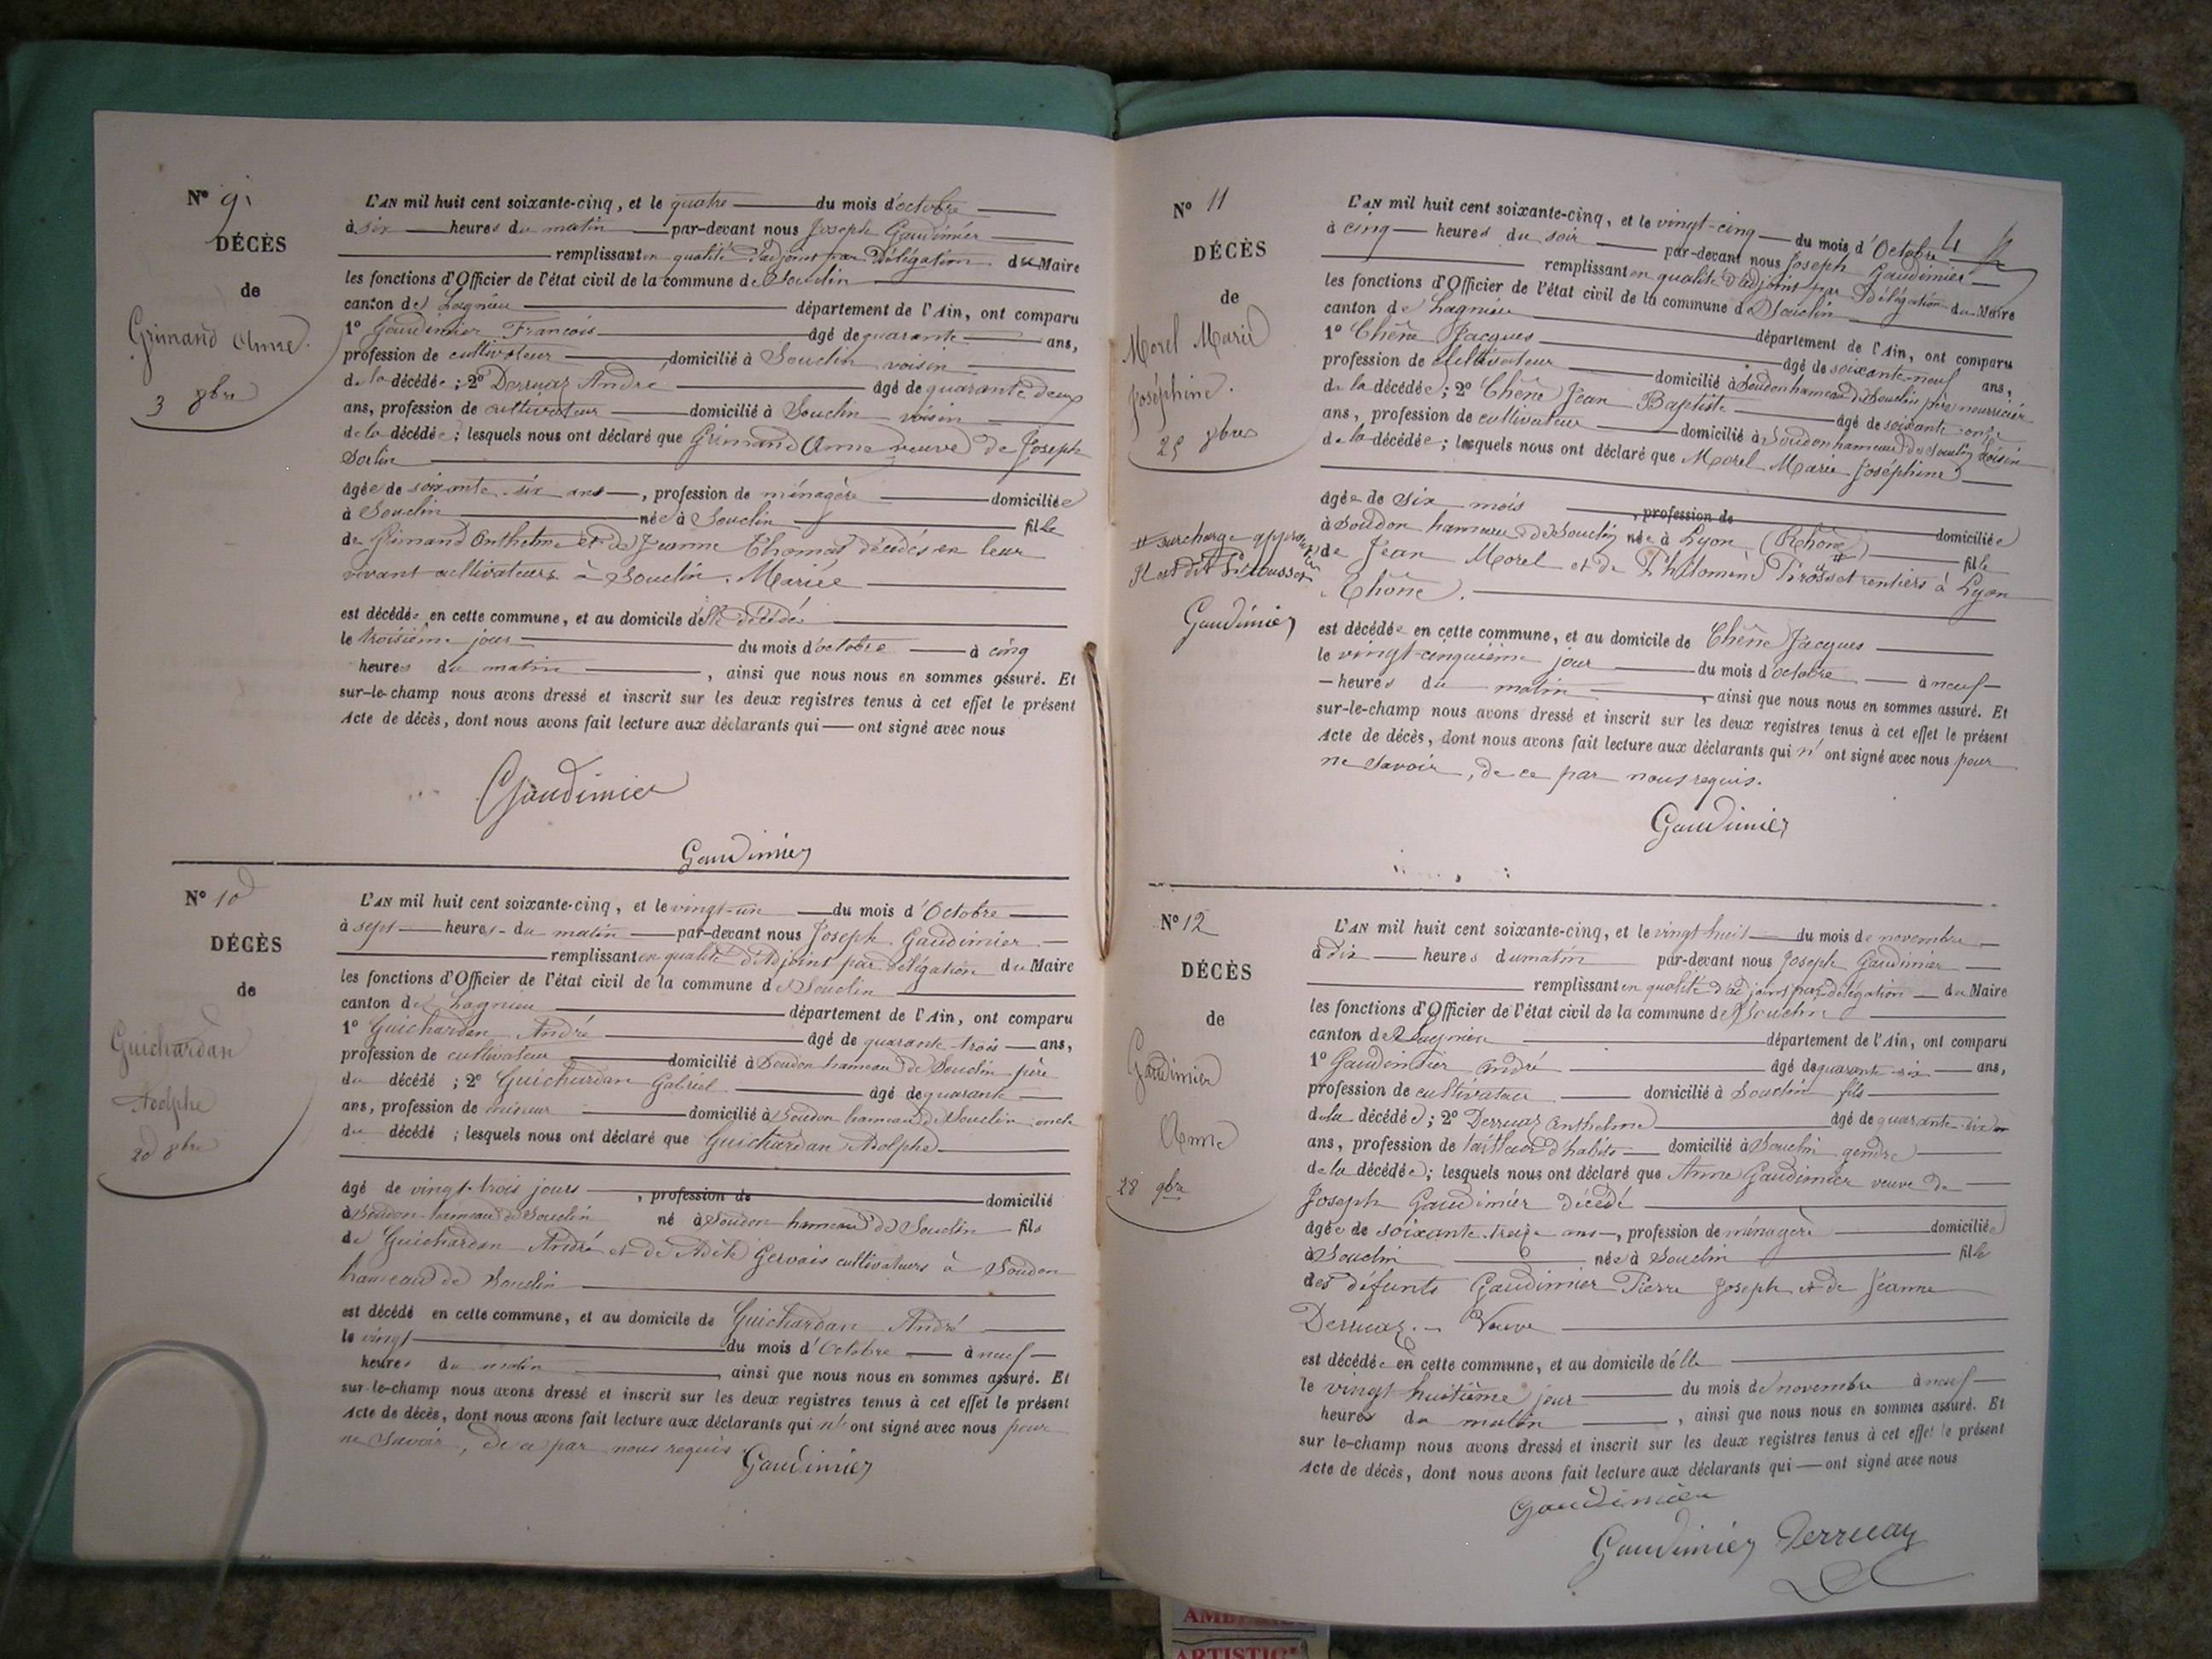 N° 9
DÉCÈS
de
Grimand Anne.
3 8bre
L'AN mil huit cent soixante-cinq, et le quatre du mois d'octobre
à six heures du matin par-devant nous Joseph Gaudimier
remplissant en qualité d'adjoint par Délégation du Maire
les fonctions d'Officier de l'état civil de la commune de Souclin
canton de Lagnieu département de l'Ain, ont comparu
1° Gaudimier François âgé de quarante ans,
profession de cultivateur domicilié à Souclin voisin
de la décédée; 2° Derruaz André âgé de quarante deux
ans, profession de cultivateur domicilié à Souclin voisin
de la décédée; lesquels nous ont déclaré que Grimand Anne veuve de Joseph
âgée de soixante six ans, profession de ménagère domiciliée
à Souclin née à Souclin fille
de Grimand Anthelme et de Jeanne Thomas décédés en leur
vivant cultivateurs à Souclin. Mariée
est décédée en cette commune, et au domicile de la décédée
le troisième jour du mois d'octobre à cinq
heures du matin, ainsi que nous nous en sommes assuré. Et
sur-le-champ nous avons dressé et inscrit sur les deux registres tenus à cet effet le présent
Acte de décès, dont nous avons fait lecture aux déclarants qui ont signé avec nous
Gaudimier
Gaudimier
N° 10
DÉCÈS
de
Guichardan
Adolphe
20 8bre
L'AN mil huit cent soixante-cinq, et le vingt-un du mois d'Octobre
à sept heures du matin par-devant nous Joseph Gaudimier
remplissant en qualité d'Adjoint par délégation du Maire
les fonctions d'Officier de l'état civil de la commune de Souclin
canton de Lagnieu département de l'Ain, ont comparu
1° Guichardan André âgé de quarante-trois ans,
profession de cultivateur domicilié à Soudon hameau de Souclin père
du décédé; 2° Guichardan Gabriel âgé de quarante
ans, profession de mineur domicilié à Soudon hameau de Souclin oncle
du décédé; lesquels nous ont déclaré que Guichardan Adolphe
âgé de vingt-trois jours, profession de domicilié
à Soudon hameau de Souclin né à Soudon hameau de Souclin fils
de Guichardan André et de Adèle Gervais cultivateurs à Soudon
hameau de Souclin
est décédé en cette commune, et au domicile de Guichardan André
le vingt du mois d'Octobre à neuf
heures du matin, ainsi que nous nous en sommes assuré. Et
sur-le-champ nous avons dressé et inscrit sur les deux registres tenus à cet effet le présent
Acte de décès, dont nous avons fait lecture aux déclarants qui n'ont signé avec nous pour
ne savoir, de ce par nous requis.
Gaudimier
N° 11
DÉCÈS
de
Morel Marie
Joséphine.
25 8bre
surcharge approuvée
Il est dit Pirousset
Gaudimier
L'AN mil huit cent soixante-cinq, et le vingt-cinq du mois d'Octobre
à cinq heures du soir par-devant nous Joseph Gaudimier
remplissant en qualité d'adjoint par Délégation du Maire
les fonctions d'Officier de l'état civil de la commune de Souclin
canton de Lagnieu département de l'Ain, ont comparu
1° Chêne Jacques âgé de soixante-neuf ans,
profession de cultivateur domicilié à Soudon hameau de Souclin père nourricier
de la décédée; 2° Chêne Jean Baptiste âgé de soixante onze
ans, profession de cultivateur domicilié à Soudon hameau de Souclin voisin
de la décédée; lesquels nous ont déclaré que Morel Marie Joséphine
âgée de six mois, profession de domiciliée
à Soudon hameau de Souclin née à Lyon (Rhône) fille
de Jean Morel et de Philomène Pirousset rentiers à Lyon
Rhône.
est décédée en cette commune, et au domicile de Chêne Jacques
le vingt-cinquième jour du mois d'octobre à neuf
heures du matin, ainsi que nous nous en sommes assuré. Et
sur-le-champ nous avons dressé et inscrit sur les deux registres tenus à cet effet le présent
Acte de décès, dont nous avons fait lecture aux déclarants qui n'ont signé avec nous pour
ne savoir, de ce par nous requis.
Gaudimier
N° 12
DÉCÈS
de
Gaudimier
Anne
28 9bre
L'AN mil huit cent soixante-cinq, et le vingt huit du mois de novembre
à dix heures du matin par-devant nous Joseph Gaudimier
remplissant en qualité d'adjoint par délégation du Maire
les fonctions d'Officier de l'état civil de la commune de Souclin
canton de Lagnieu département de l'Ain, ont comparu
1° Gaudimier André âgé de quarante-six ans,
profession de cultivateur domicilié à Souclin fils
de la décédée; 2° Derruaz Anthelme âgé de quarante-six
ans, profession de tailleur d'habits domicilié à Souclin gendre
de la décédée; lesquels nous ont déclaré que Anne Gaudimier veuve de
Joseph Gaudimier décédé
âgée de soixante-treize ans, profession de ménagère domiciliée
à Souclin née à Souclin fille
des défunts Gaudimier Pierre Joseph et de Jeanne
Derruaz. Veuve
est décédée en cette commune, et au domicile d'elle
le vingt huitième jour du mois de novembre à neuf
heures du matin, ainsi que nous nous en sommes assuré. Et
sur le-champ nous avons dressé et inscrit sur les deux registres tenus à cet effet le présent
Acte de décès, dont nous avons fait lecture aux déclarants qui ont signé avec nous
Gaudimier
Gaudimier Derruaz
ARTISTIC